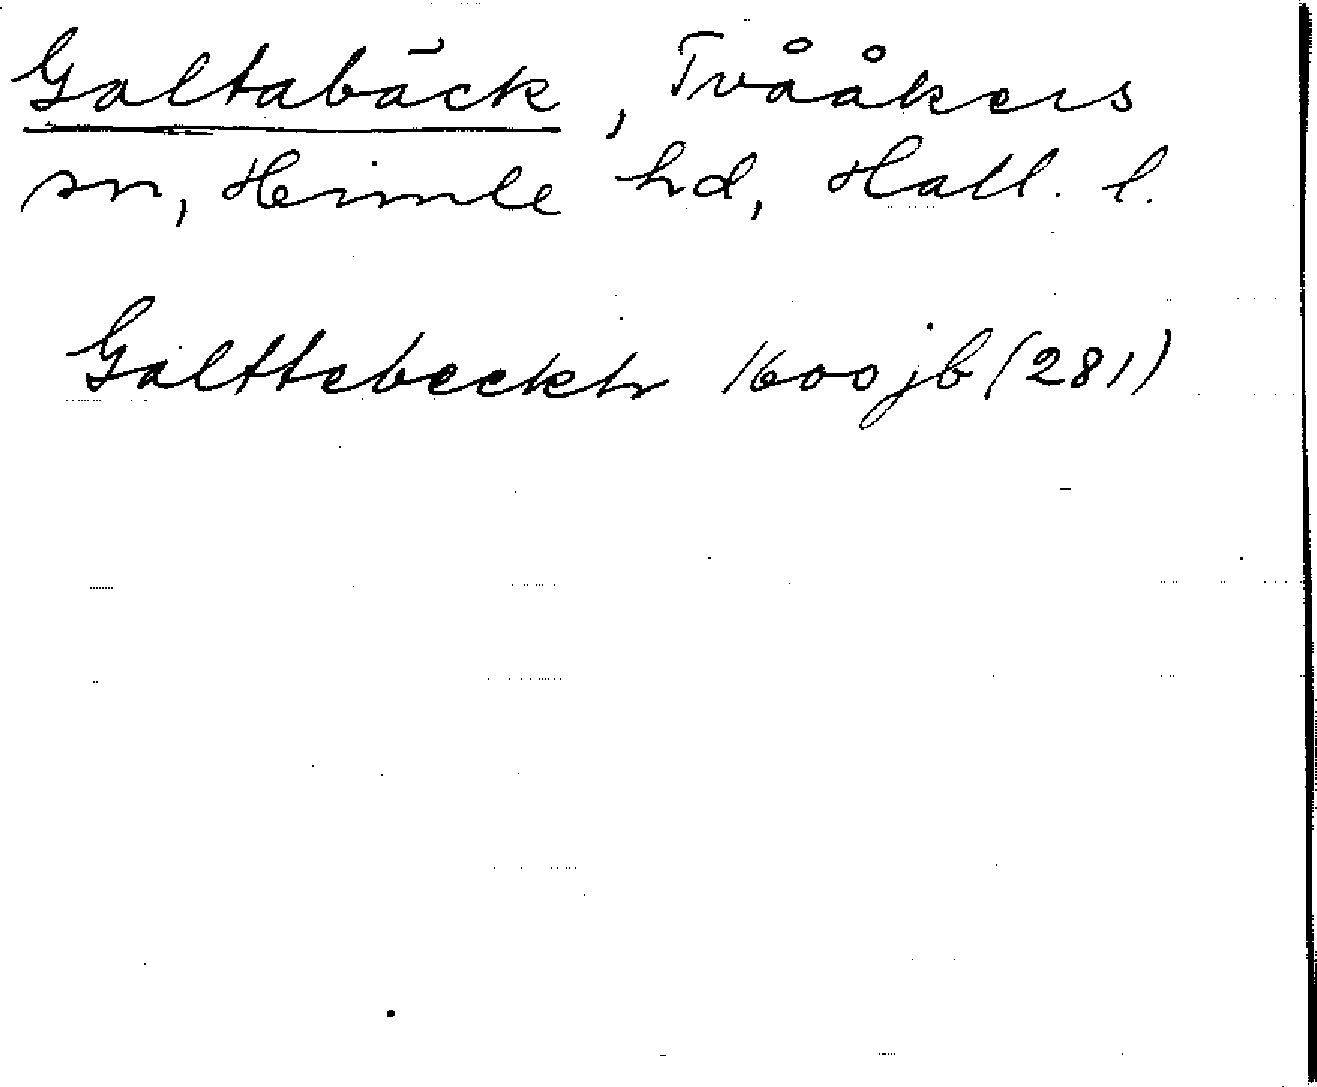 Galtabäck, Tvååkers
sn, Himle hd, Hall. l.
Galttebeckh 1600 jb (281)